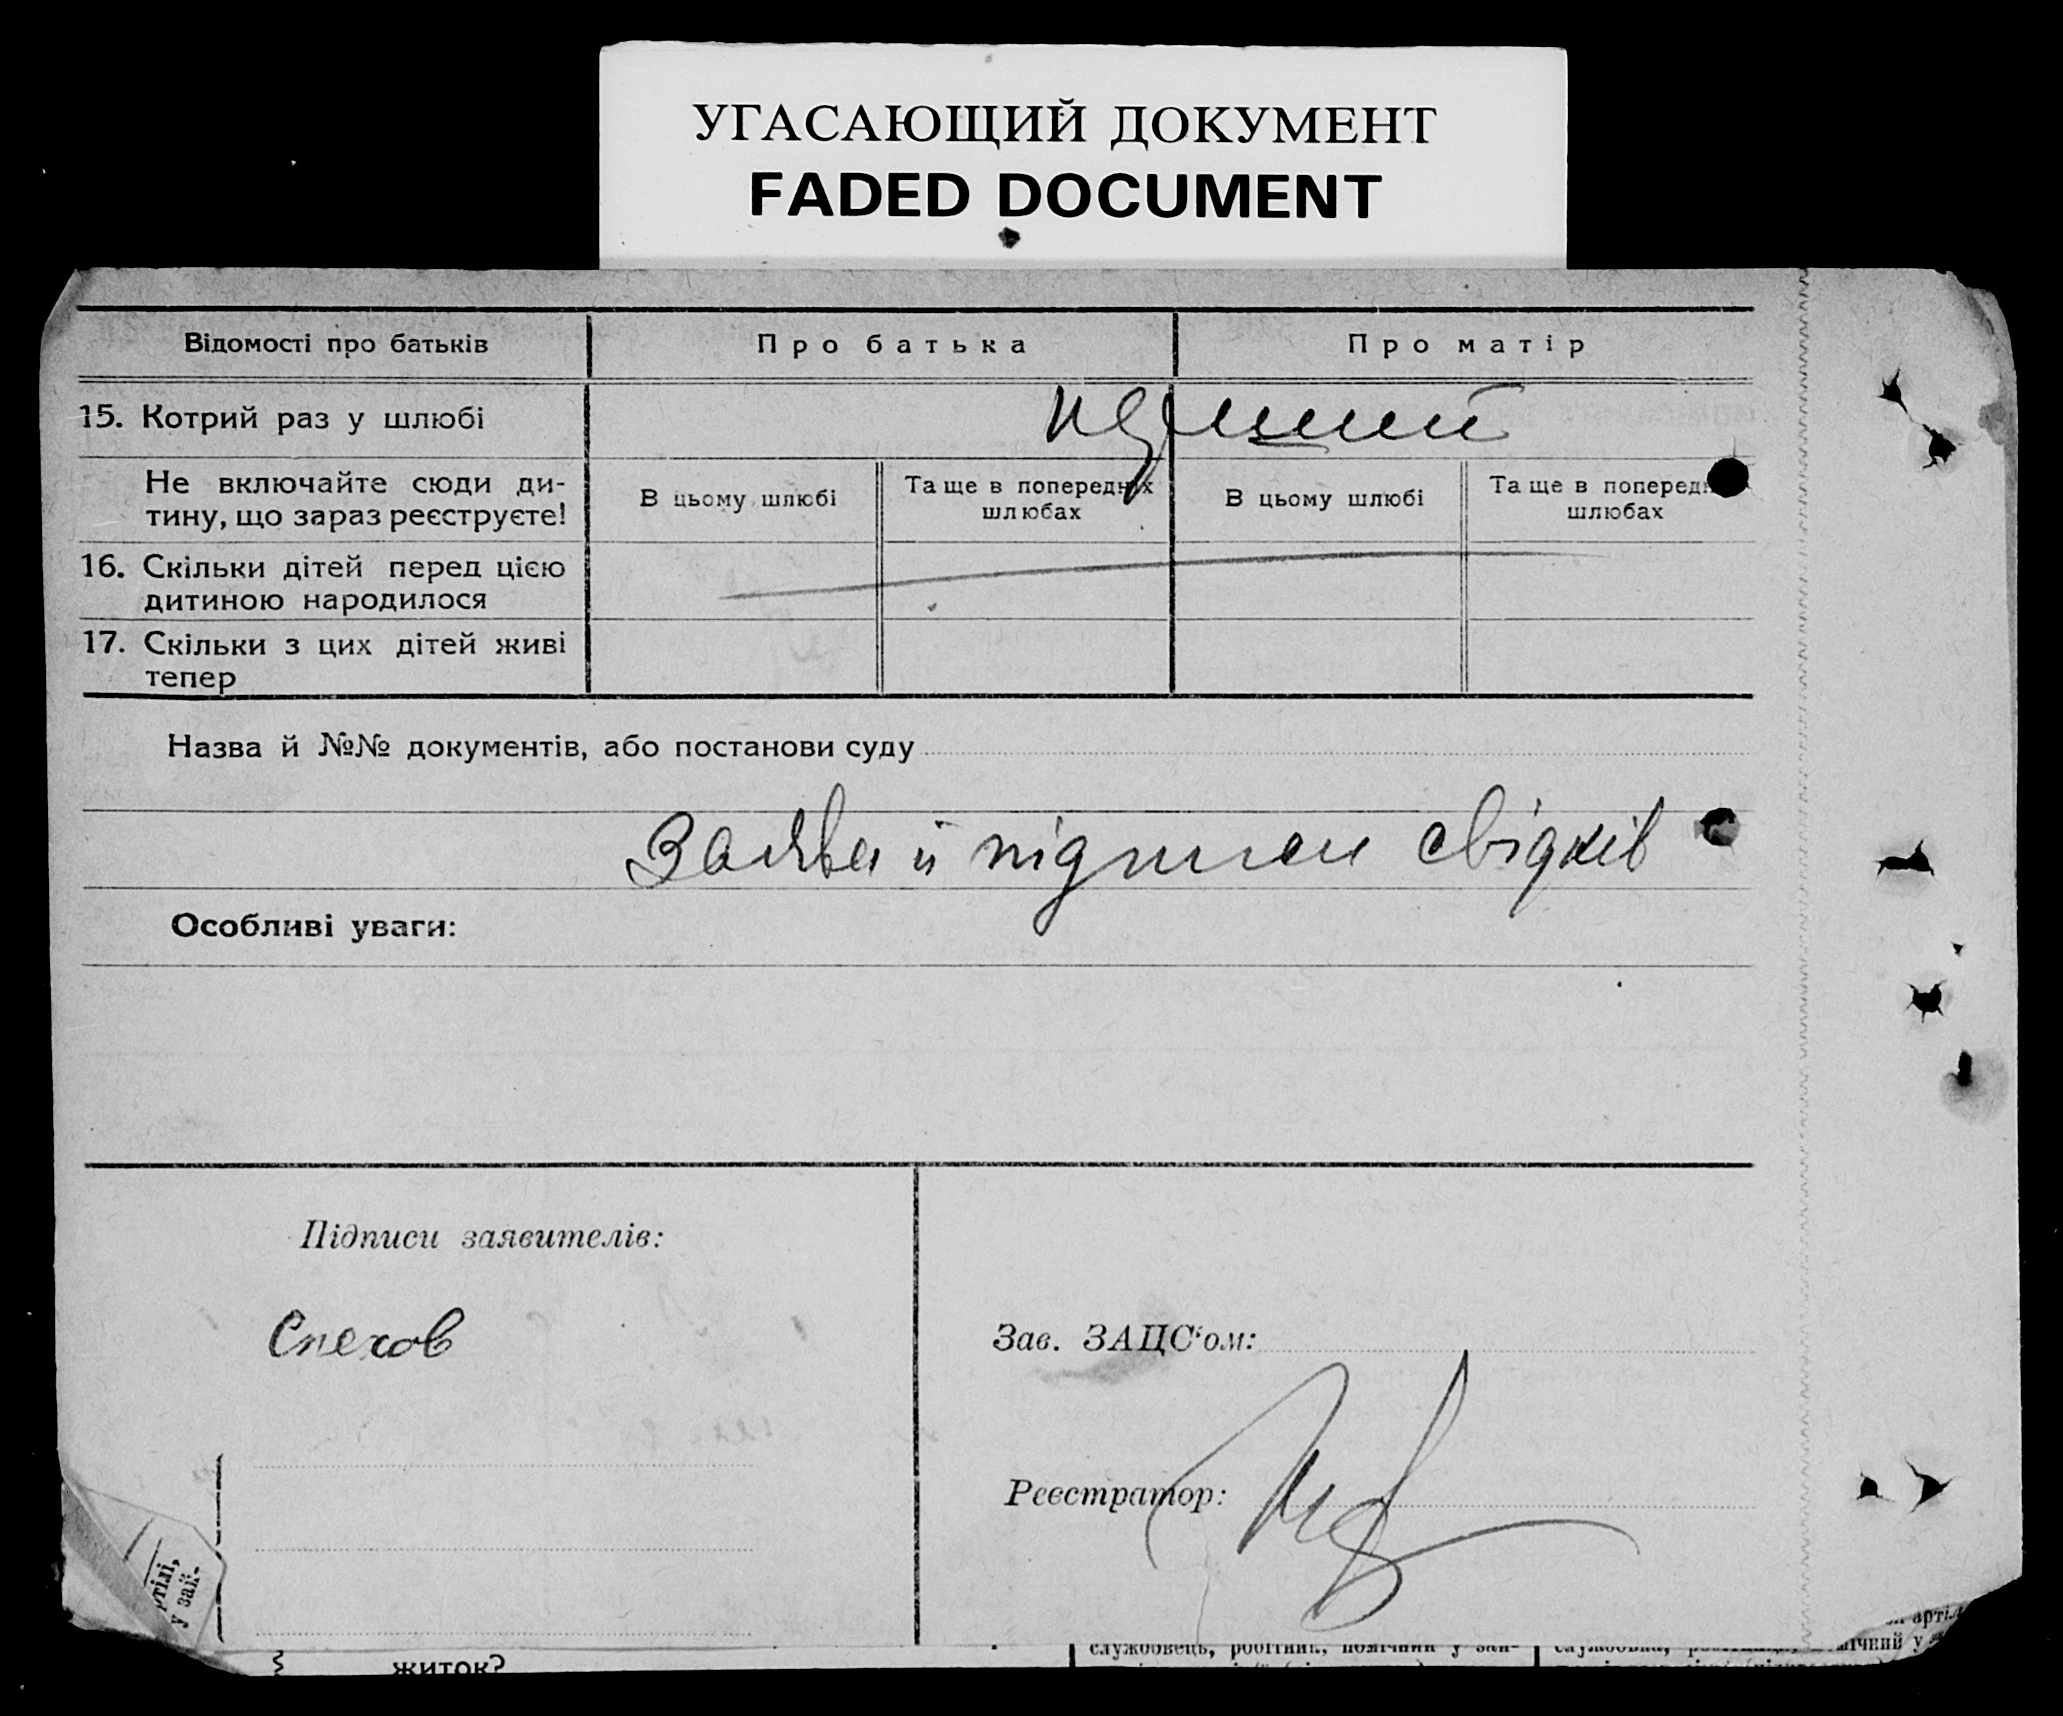 УГАСАЮЩИЙ ДОКУМЕНТ
FADED DOCUMENT
Відомості про батьків
Про батька
Про матір
15. Котрий раз у шлюбі
Не включайте сюди ди-
тину, що зараз реєструєте!
В цьому шлюбі
Та ще в попередніх
шлюбах
В цьому шлюбі
Та ще в поперед
шлюбах
16. Скільки дітей перед цією
дитиною народилося
17. Скільки з цих дітей живі
тепер
Назва й №№ документів, або постанови суду
Заява й підписи свідків
Особливі уваги:
Підписи заявителів:
Спехов
Зав. ЗАЦС‘ом:
Реєстратор:
ртілі,
у зай-
житок?
службовець, робітник, помічний у зай-
артіл
ічний у